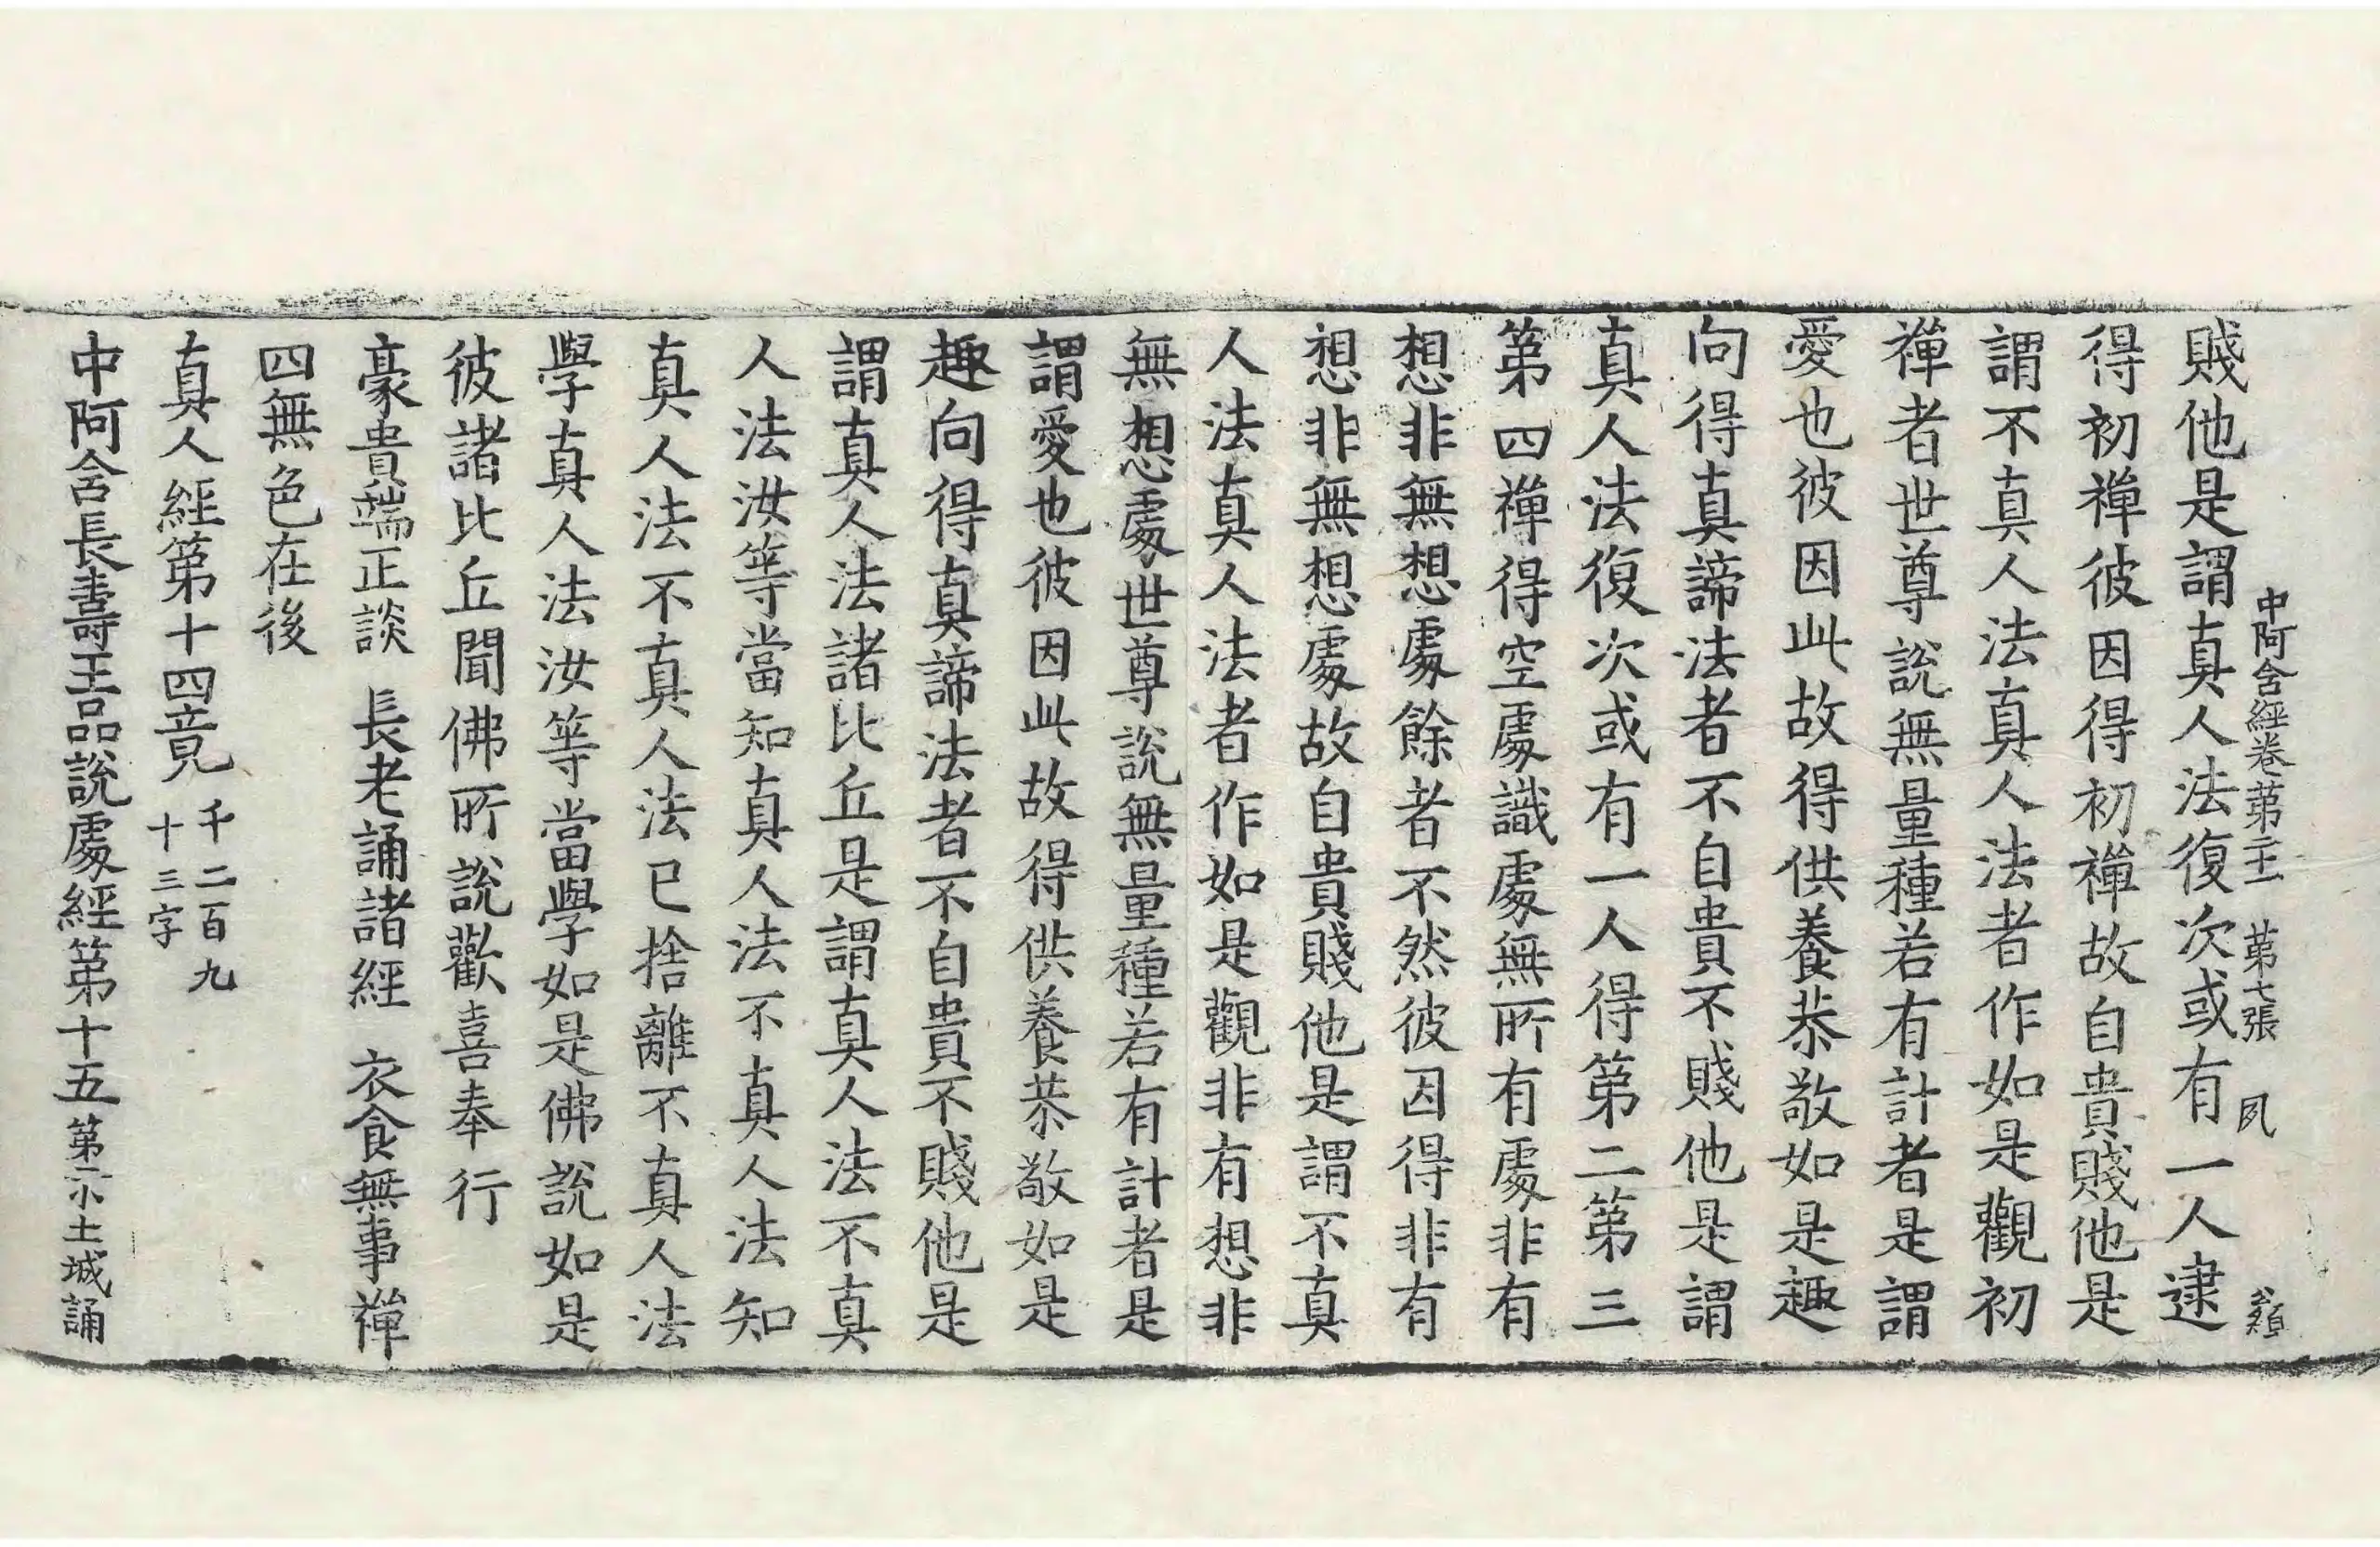 中阿含經卷第二十一 第七張 夙
賤他是謂真人法復次或有一人逮
得初禪彼因得初禪故自貴賤他是
謂不真人法真人法者作如是觀初
禪者世尊說無量種若有計者是謂
愛也彼因此故得供養恭敬如是趣
向得真諦法者不自貴不賤他是謂
真人法復次或有一人得第二第三
第四禪得空處識處無所有處非有
想非無想處餘者不然彼因得非有
想非無想處故自貴賤他是謂不真
人法真人法者作如是觀非有想非
無想處世尊說無量種若有計者是
謂愛也彼因此故得供養恭敬如是
趣向得真諦法者不自貴不賤他是
謂真人法諸比丘是謂真人法不真
人法汝等當知真人法不真人法知
真人法不真人法已捨離不真人法
學真人法汝等當學如是佛說如是
彼諸比丘聞佛所說歡喜奉行
豪貴端正談 長老誦諸經 衣食無事禪
四無色在後
真人經第十四竟 千二百九十三字
中阿含長壽王品說處經第十五 第二小土城誦